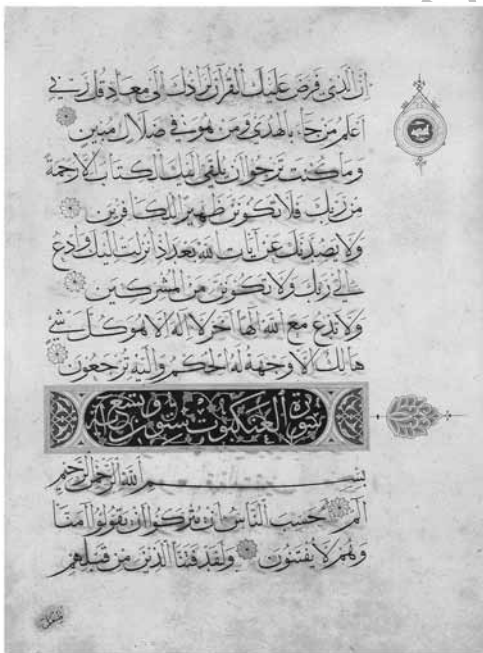 إن الذي فرض عليك القرآن لرادك إلى معاد قل ربي
أعلم من جاء بالهدى ومن هو في ضلال مبين
وما كنت ترجو أن يلقى إليك الكتاب إلا رحمة
من ربك فلا تكونن ظهيرا للكافرين
ولا يصدنك عن آيات الله بعد إذ أنزلت إليك وادع
إلى ربك ولا تكونن من المشركين
ولا تدع مع الله إلها آخر لا إله إلا هو كل شيء
هالك إلا وجهه له الحكم وإليه ترجعون
سورة العنكبوت ستون وتسع آية
بسم الله الرحمن الرحيم
الم أحسب الناس أن يتركوا أن يقولوا آمنا
وهم لا يفتنون ولقد فتنا الذين من قبلهم